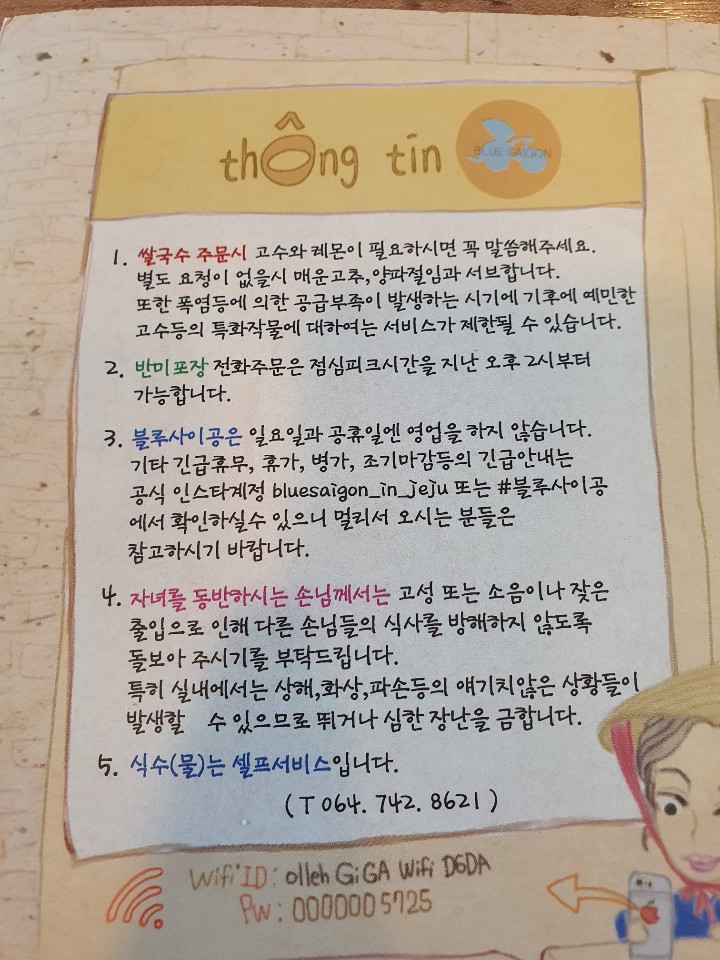 thông tin
BLUE SAIGON
1. 쌀국수 주문시 고수와 레몬이 필요하시면 꼭 말씀해주세요.
별도 요청이 없을시 매운고추,양파절임과 서브합니다.
또한 폭염등에 의한 공급부족이 발생하는 시기에 기후에 예민한
고수등의 특화작물에 대하여는 서비스가 제한될 수 있습니다.
2. 반미포장 전화주문은 점심피크시간을 지난 오후 2시부터
가능합니다.
3. 블루사이공은 일요일과 공휴일엔 영업을 하지 않습니다.
기타 긴급휴무, 휴가, 병가, 조기마감등의 긴급안내는
공식 인스타계정 bluesaigon_in_jeju 또는 #블루사이공
에서 확인하실수 있으니 멀리서 오시는 분들은
참고하시기 바랍니다.
4. 자녀를 동반하시는 손님께서는 고성 또는 소음이나 잦은
출입으로 인해 다른 손님들의 식사를 방해하지 않도록
돌보아 주시기를 부탁드립니다.
특히 실내에서는 상해,화상,파손등의 얘기치않은 상황들이
발생할 수 있으므로 뛰거나 심한 장난을 금합니다.
5. 식수(물)는 셀프서비스입니다.
(T 064. 742. 8621)
Wifi ID: olleh GiGA Wifi D6DA
Pw: 0000005725